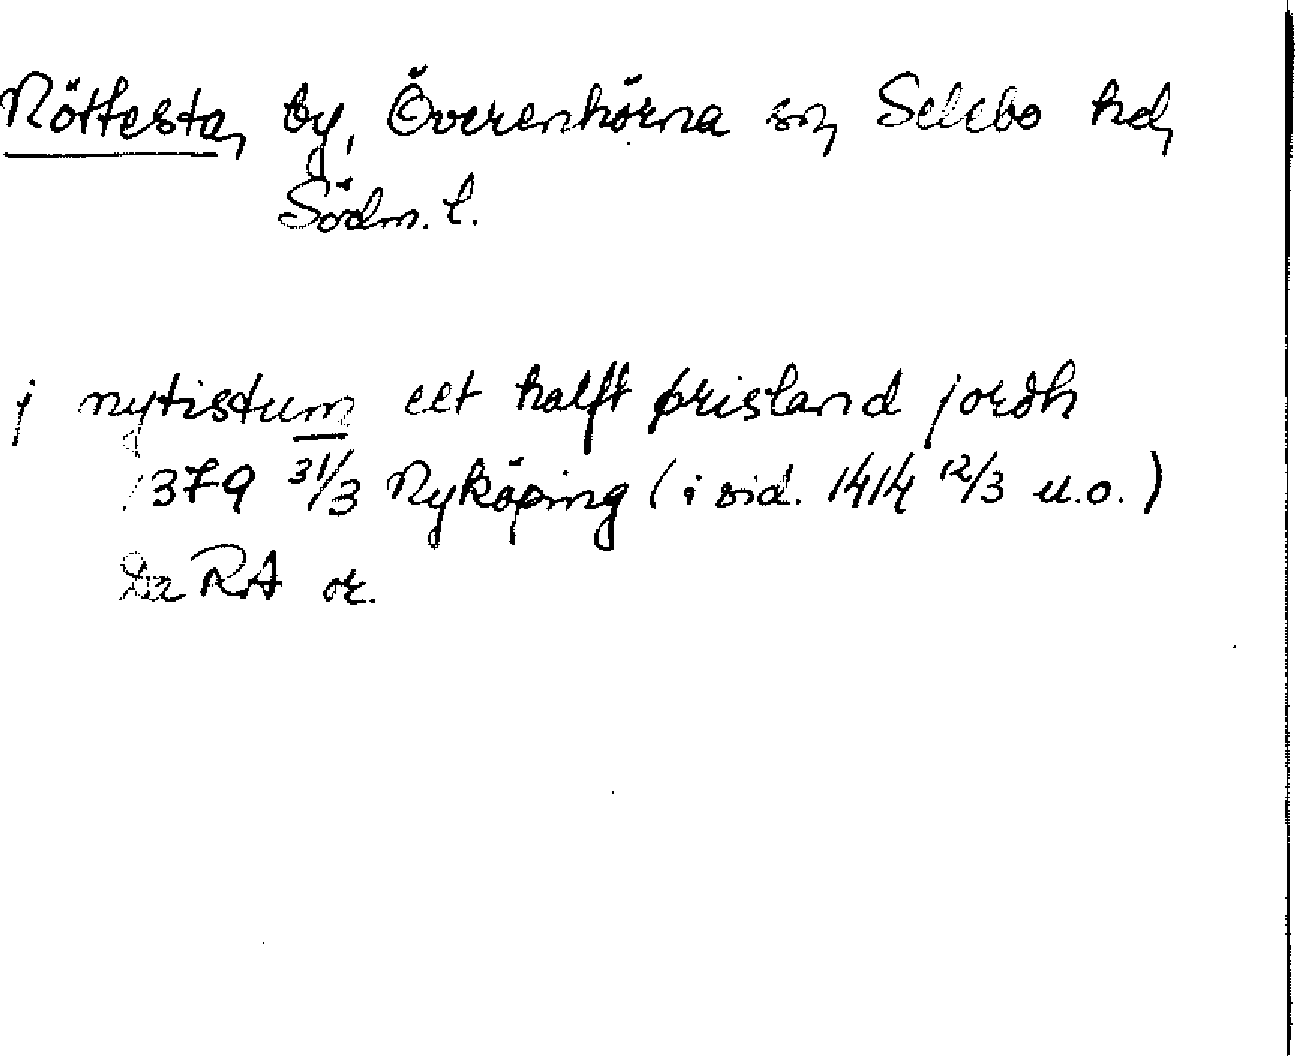 Nöttesta, by, Överenhörna sn, Selebo hd,
Södm. l.
j nytistum eet halft þrisland jordh
1379 31/3 Nyköping (i vid. 1414 12/3 u.o.)
Da RA or.